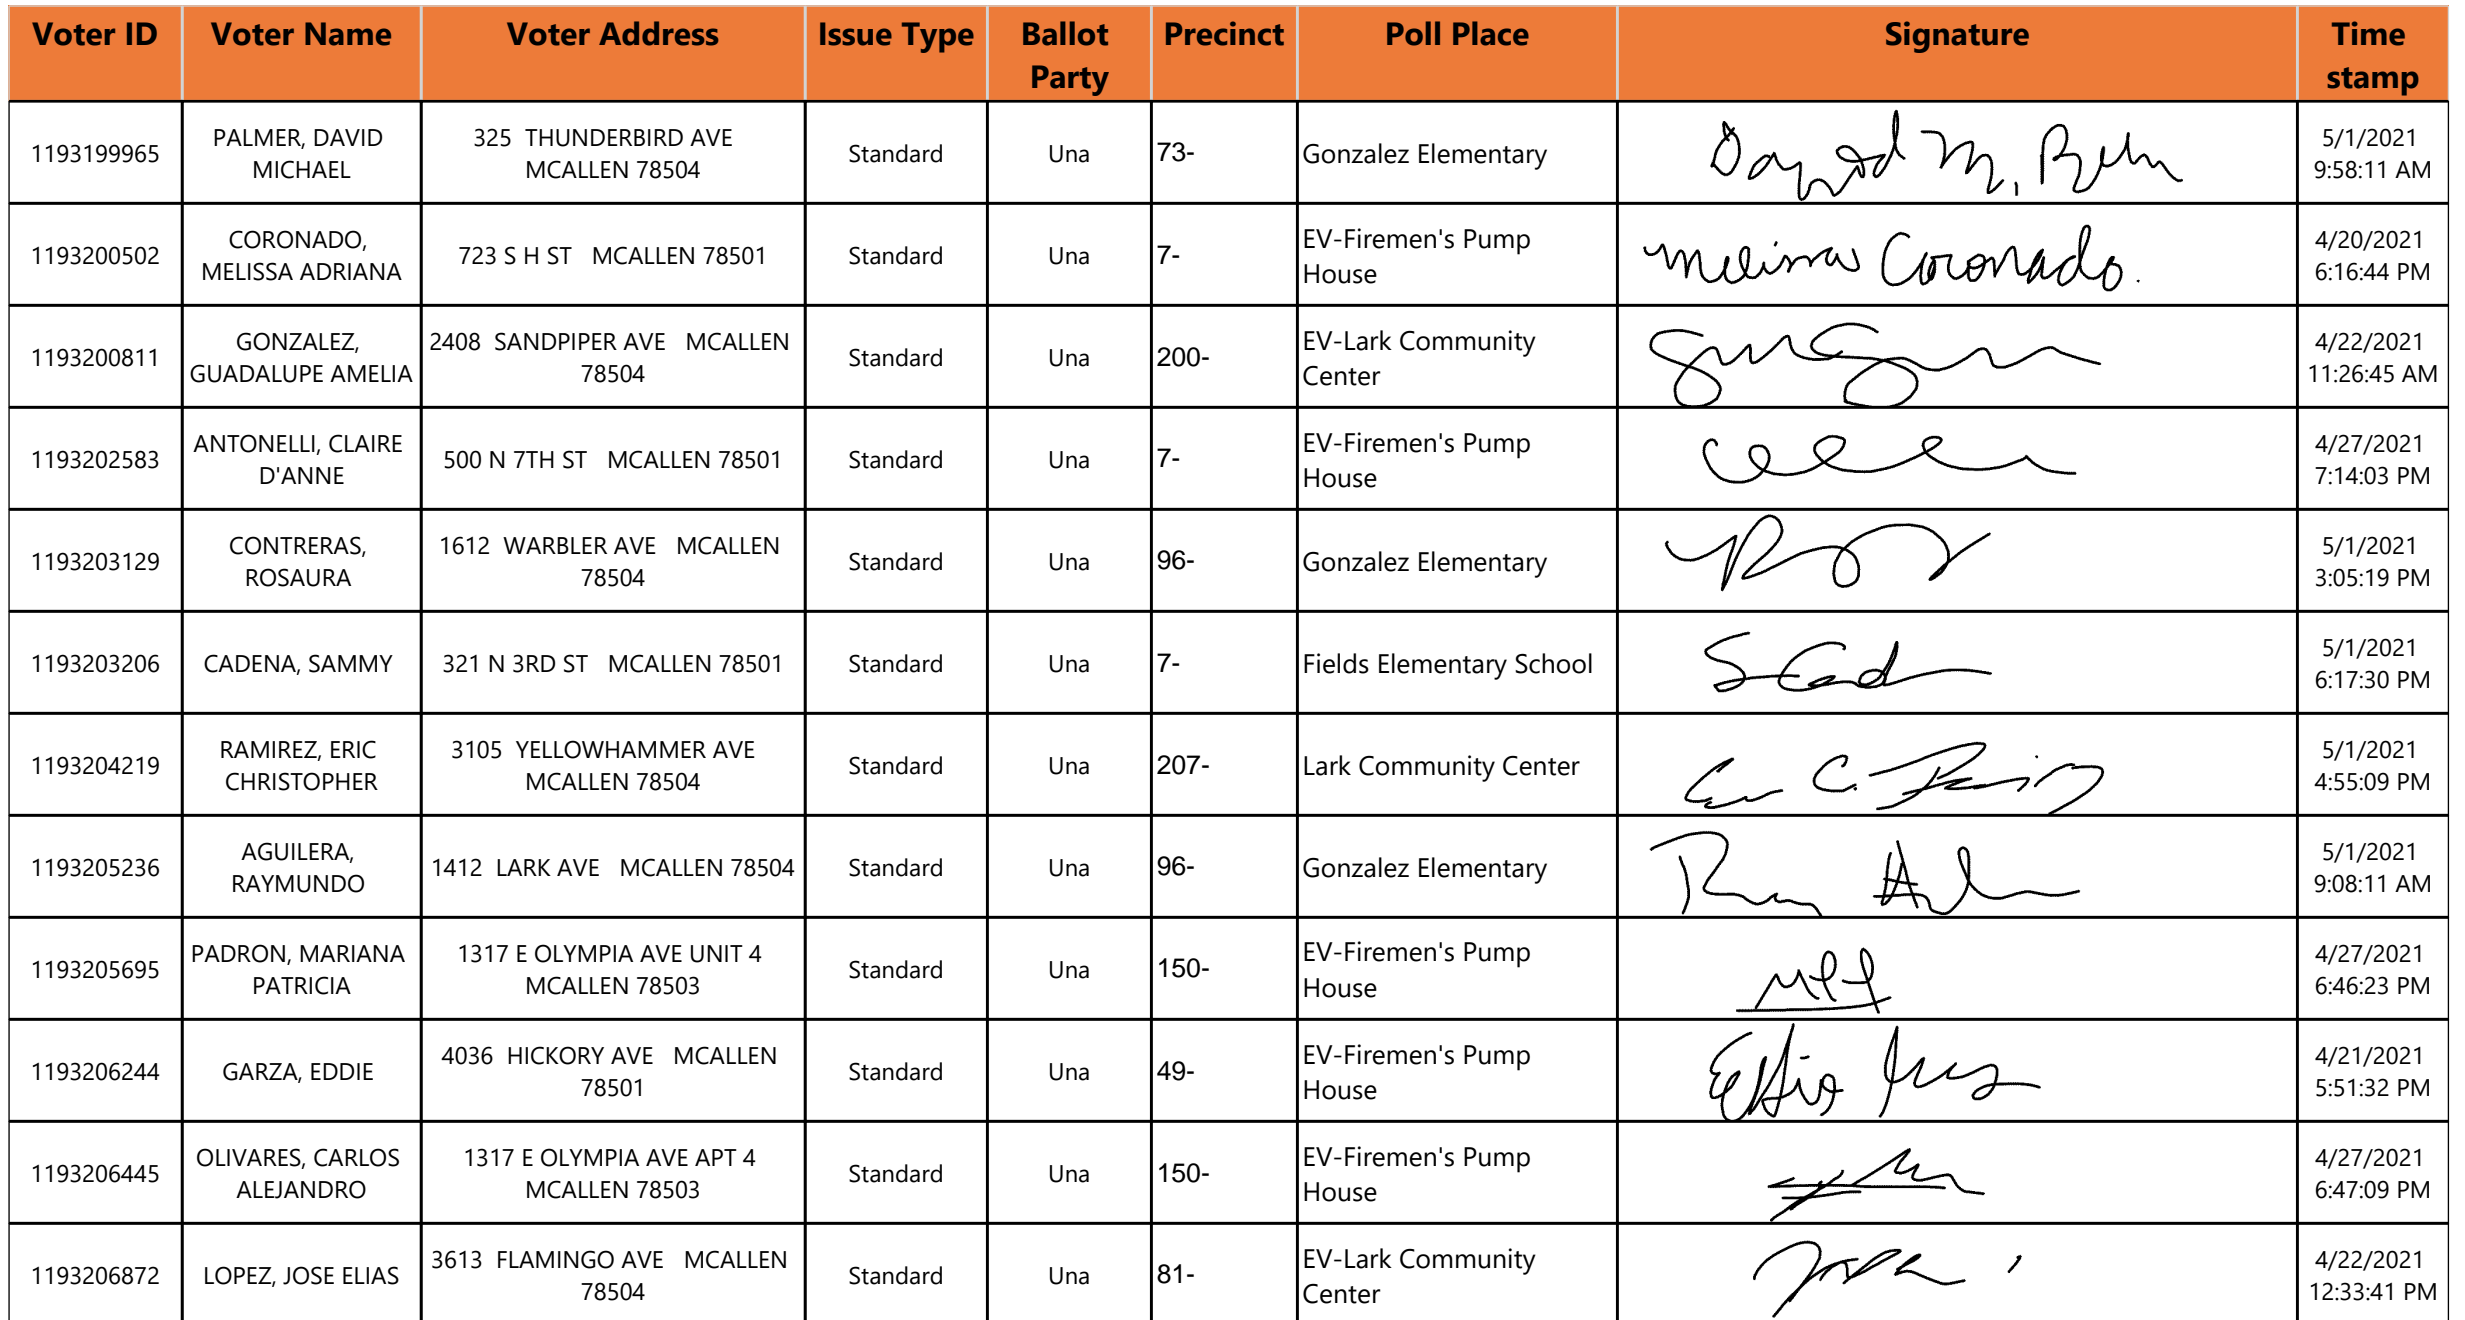 Voter ID Voter Name Voter Address Issue Type Ballot Party Precinct Poll Place Signature Time stamp
1193199965 PALMER, DAVID MICHAEL 325 THUNDERBIRD AVE MCALLEN 78504 Standard Una 73- Gonzalez Elementary David M. 5/1/2021 9:58:11 AM
1193200502 CORONADO, MELISSA ADRIANA 723 S H ST MCALLEN 78501 Standard Una 7- EV-Firemen's Pump House Melissa Coronado. 4/20/2021 6:16:44 PM
1193200811 GONZALEZ, GUADALUPE AMELIA 2408 SANDPIPER AVE MCALLEN 78504 Standard Una 200- EV-Lark Community Center 4/22/2021 11:26:45 AM
1193202583 ANTONELLI, CLAIRE D'ANNE 500 N 7TH ST MCALLEN 78501 Standard Una 7- EV-Firemen's Pump House 4/27/2021 7:14:03 PM
1193203129 CONTRERAS, ROSAURA 1612 WARBLER AVE MCALLEN 78504 Standard Una 96- Gonzalez Elementary 5/1/2021 3:05:19 PM
1193203206 CADENA, SAMMY 321 N 3RD ST MCALLEN 78501 Standard Una 7- Fields Elementary School 5/1/2021 6:17:30 PM
1193204219 RAMIREZ, ERIC CHRISTOPHER 3105 YELLOWHAMMER AVE MCALLEN 78504 Standard Una 207- Lark Community Center 5/1/2021 4:55:09 PM
1193205236 AGUILERA, RAYMUNDO 1412 LARK AVE MCALLEN 78504 Standard Una 96- Gonzalez Elementary 5/1/2021 9:08:11 AM
1193205695 PADRON, MARIANA PATRICIA 1317 E OLYMPIA AVE UNIT 4 MCALLEN 78503 Standard Una 150- EV-Firemen's Pump House 4/27/2021 6:46:23 PM
1193206244 GARZA, EDDIE 4036 HICKORY AVE MCALLEN 78501 Standard Una 49- EV-Firemen's Pump House 4/21/2021 5:51:32 PM
1193206445 OLIVARES, CARLOS ALEJANDRO 1317 E OLYMPIA AVE APT 4 MCALLEN 78503 Standard Una 150- EV-Firemen's Pump House 4/27/2021 6:47:09 PM
1193206872 LOPEZ, JOSE ELIAS 3613 FLAMINGO AVE MCALLEN 78504 Standard Una 81- EV-Lark Community Center 4/22/2021 12:33:41 PM